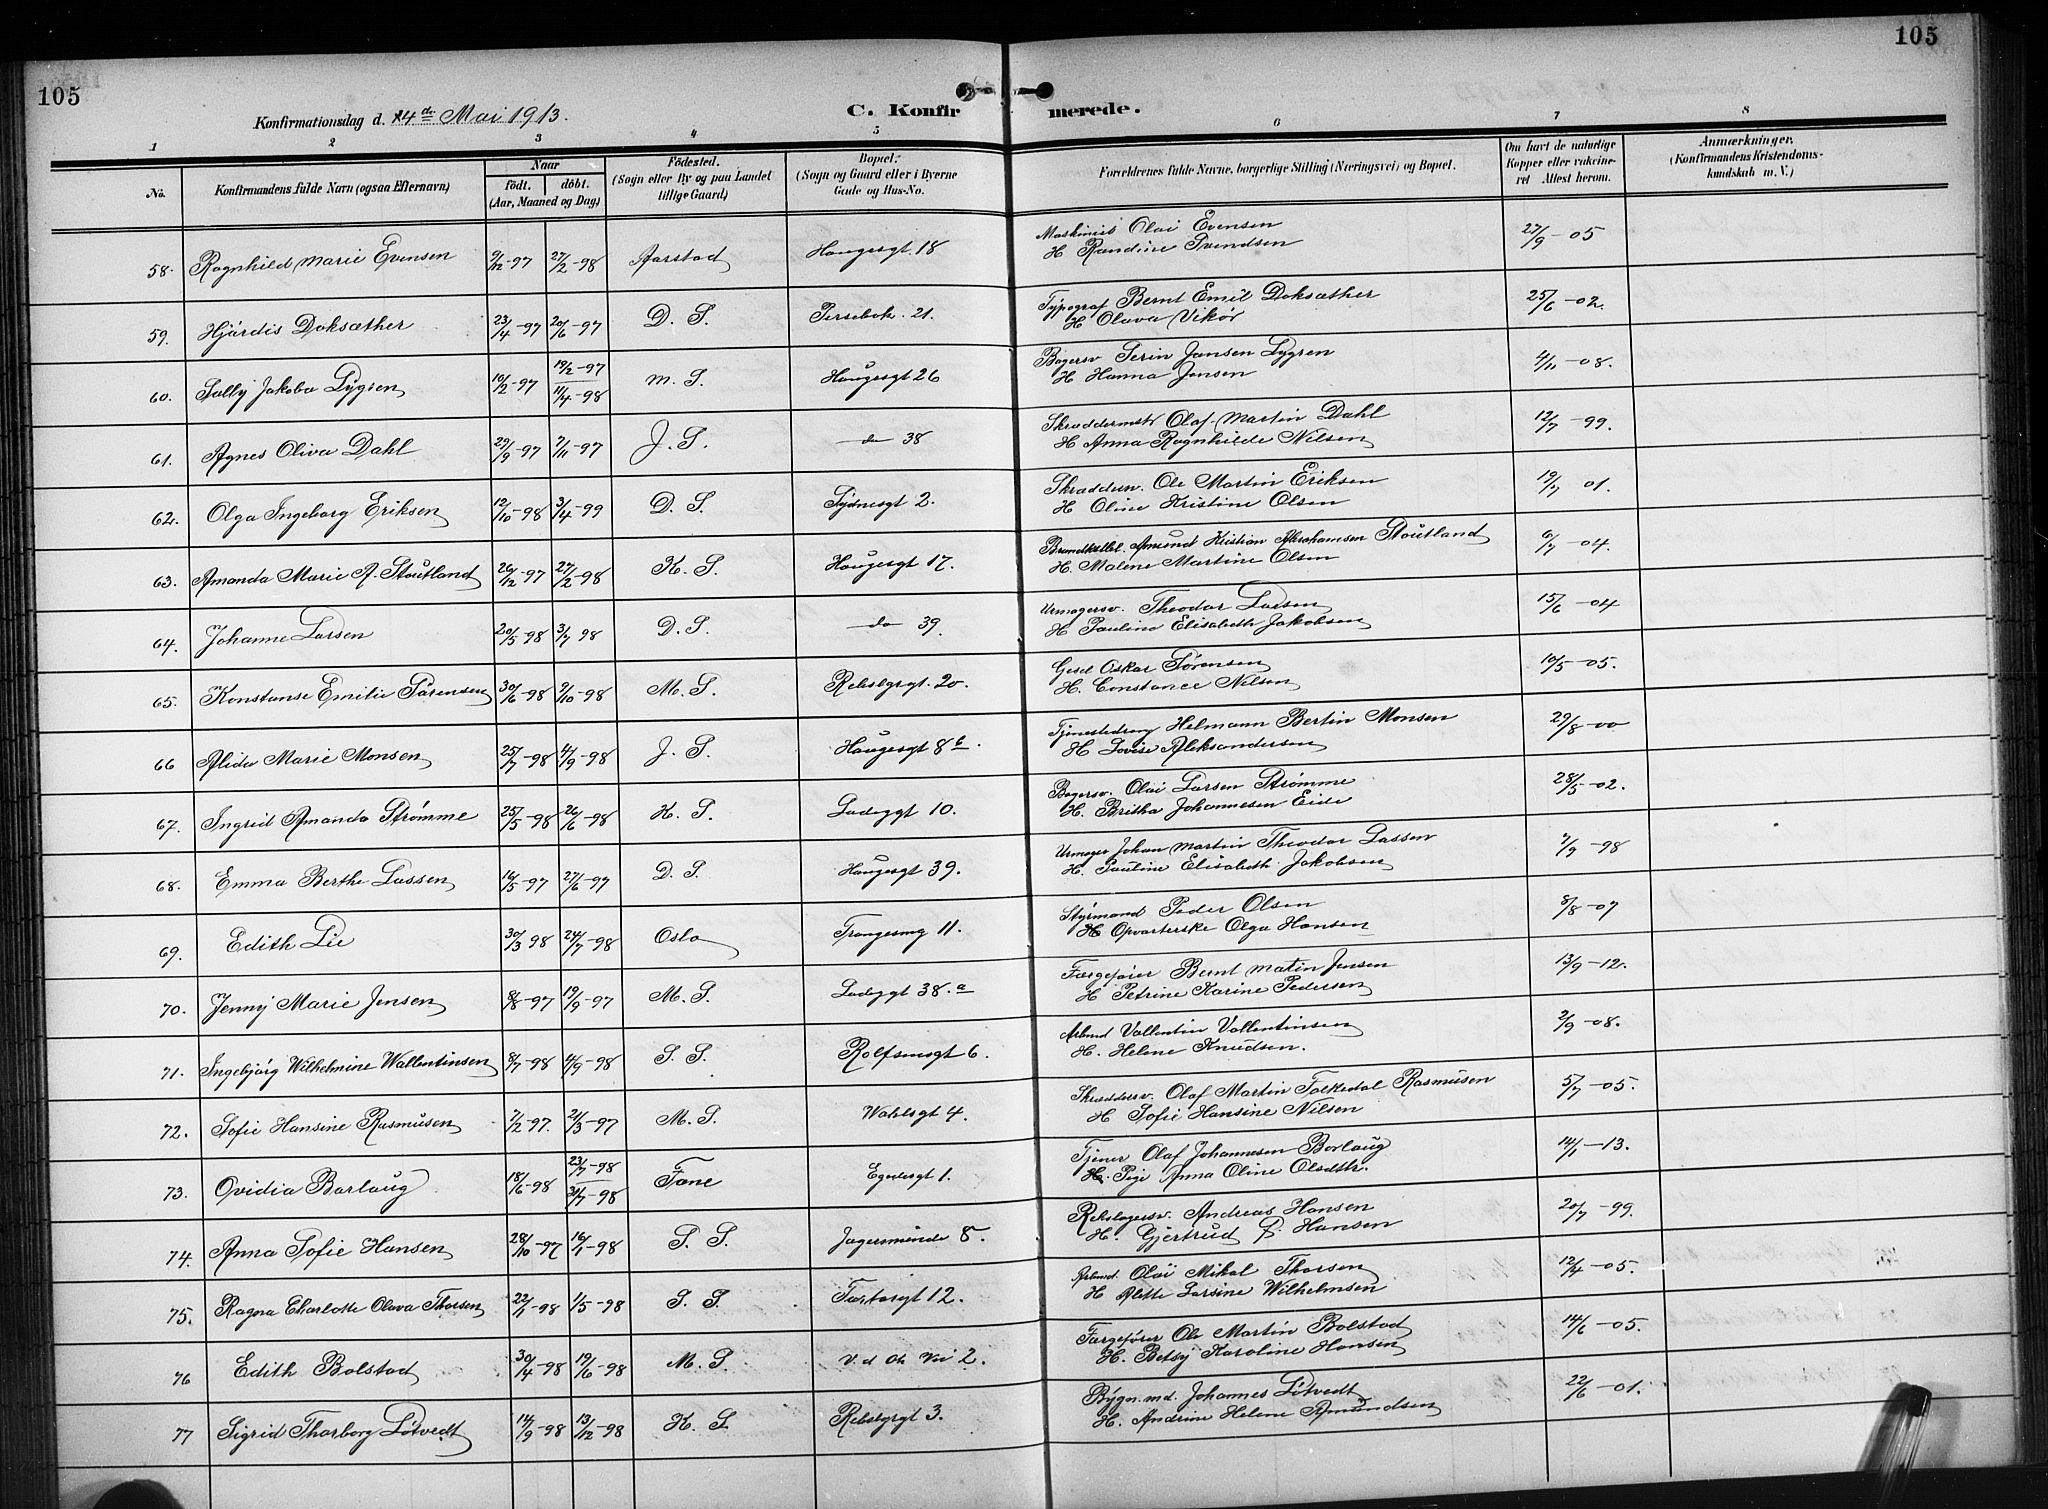 105
105
Konfirmationsdag d. 14de Mai 1913.
C. Konfirmerede.
1 2 3 4 5 6 7 8
No.
Konfirmandens fulde Navn (ogsaa Efternavn)
Naar
födt. döbt.
(Aar, Maaned og Dag)
Födested.
(Sogn eller By og paa Landet tillige Gaard)
Bopæl:
(Sogn og Gaard eller i Byerne Gade og Hus-No.
Forældrenes fulde Navne, borgerlige Stilling (Næringsvei) og Bopæl.
Om havt de naturlige Kopper eller vakcineret Attest herom.
Anmærkninger.
(Konfirmandens Kristendomskundskab m. V.)
58. Ragnhild Marie Evensen 9/12-97 27/2-98 Aarstad Haugesgt 18 Maskinist Olai Evensen 27/9-05
H Randine Svendsen
59. Hjördis Doksæther 23/4-97 20/6-97 D. S. 21. Typograf Bernt Emil Doksæther 25/6-02.
H Olava Vikör
60. Sally Jakoba Lygren 10/2-97 19/2-97 11/4-98 M. S. Haugesgt 26 Bögersv Serin Jansen Lygren 4/11-08.
H Hanna Jensen
61. Agnes Oliva Dahl 29/9-97 7/11-97 J. S. do 38 Skræddermstr Olaf Martin Dahl 12/7-99.
H Anna Ragnhilde Nilsen
62. Olga Ingeborg Eriksen 12/10-98 3/4-99 D. S. Sydnesgt 2. Skræddersv. Ole Martin Eriksen 19/7 01.
H Oline Kristine Olsen
63. Amanda Marie A. Stoutland 26/12-97 27/2-98 K. S. Haugesgt 17. Amund Kristian Abrahamsen Stoutland 6/7-04.
H. Malene Martine Olsen
64. Johanne Larsen 20/5-98 3/7 98 D. S. do 39. Urmagersv. Theodor Larsen 15/6-04
H Pauline Elisabeth Jakobsen
65. Konstanse Emilie Sörensen 30/6-98 9/10-98 M. S. 20. Gesel Oskar Sörensen 10/5-05.
H. Constance Nilsen
66 Alida Marie Monsen 25/7-98 4/9-98 J. S. Haugesgt 8b. Tjenestedreng Helmann Bertin Monsen 29/8-00
H Lovise Aleksandersen
67. Ingrid Amanda Strømme 25/5-98 26/6-98 K. S. Ladegt 10. Bögersv. Olai Larsen Strømme 28/5-02.
H. Britha Johannesen Eide
68. Emma Berthe Lassen 16/5-97 27/6-97 D. S. Haugesgt 39. Urmager Johan Martin Theodor Lassen 7/9-98
H. Pauline Elisabeth Jakobsen
69. Edith Lie 30/3 98 24/7-98 Oslo Trangesmg 11. Styrmand Peder Olsen 8/8-07
H Opvarterske Olga Hansen
70. Jenny Marie Jensen 8/8-97 19/9-97 M. S. Ladegt 38.a Bernt Matin Jensen 13/9-12.
H Petrine Karine Pedersen
71. Ingebjörg Wilhelmine Wallentinsen 8/7-98 4/9-98 S. S. Rolfsmsgt 6. Arbmd Vallentin Vallentinsen 2/9-08.
H. Helene Knudsen.
72. Sofie Hansine Rasmusen 7/2-97. 21/3-97 M. S. 4. Skræddersv. Olaf Martin Folkedal Rasmusen 5/7-05.
H Sofie Hansine Nilsen
73. Ovidia Borlaug 18/6-98 23/7-98 31/7-98 Fane Egedesgt 1. Tjener Olaf Johannesen Borlaug 14/1-13.
H. Pige Anna Oline Olsdtr.
74. Anna Sofie Hansen 28/10-97 16/1-98 S. S. Jagersminde 8. Rebslagersv. Andreas Hansen 20/7-99.
H. Gjertrud P. Hansen
75. Ragna Charlotte Olava Thorsen 22/1-98 1/5-98 S. S. 12. Arbmd. Olai Mikal Thorsen 12/4-05.
H Alette Larsine Wilhelmsen
76 Edith Bolstad 30/4-98 19/6-98 M. S. 2. Færgefører Ole Martin Bolstad 14/6-05.
H. Betsy Karoline Hansen
77 Sigrid Thorborg Løtvedt 14/9-98 13/12-98 K. S. 3. Bygn.md. Johannes Løtvedt 22/6-01.
H. Andrine Helene Amundsen